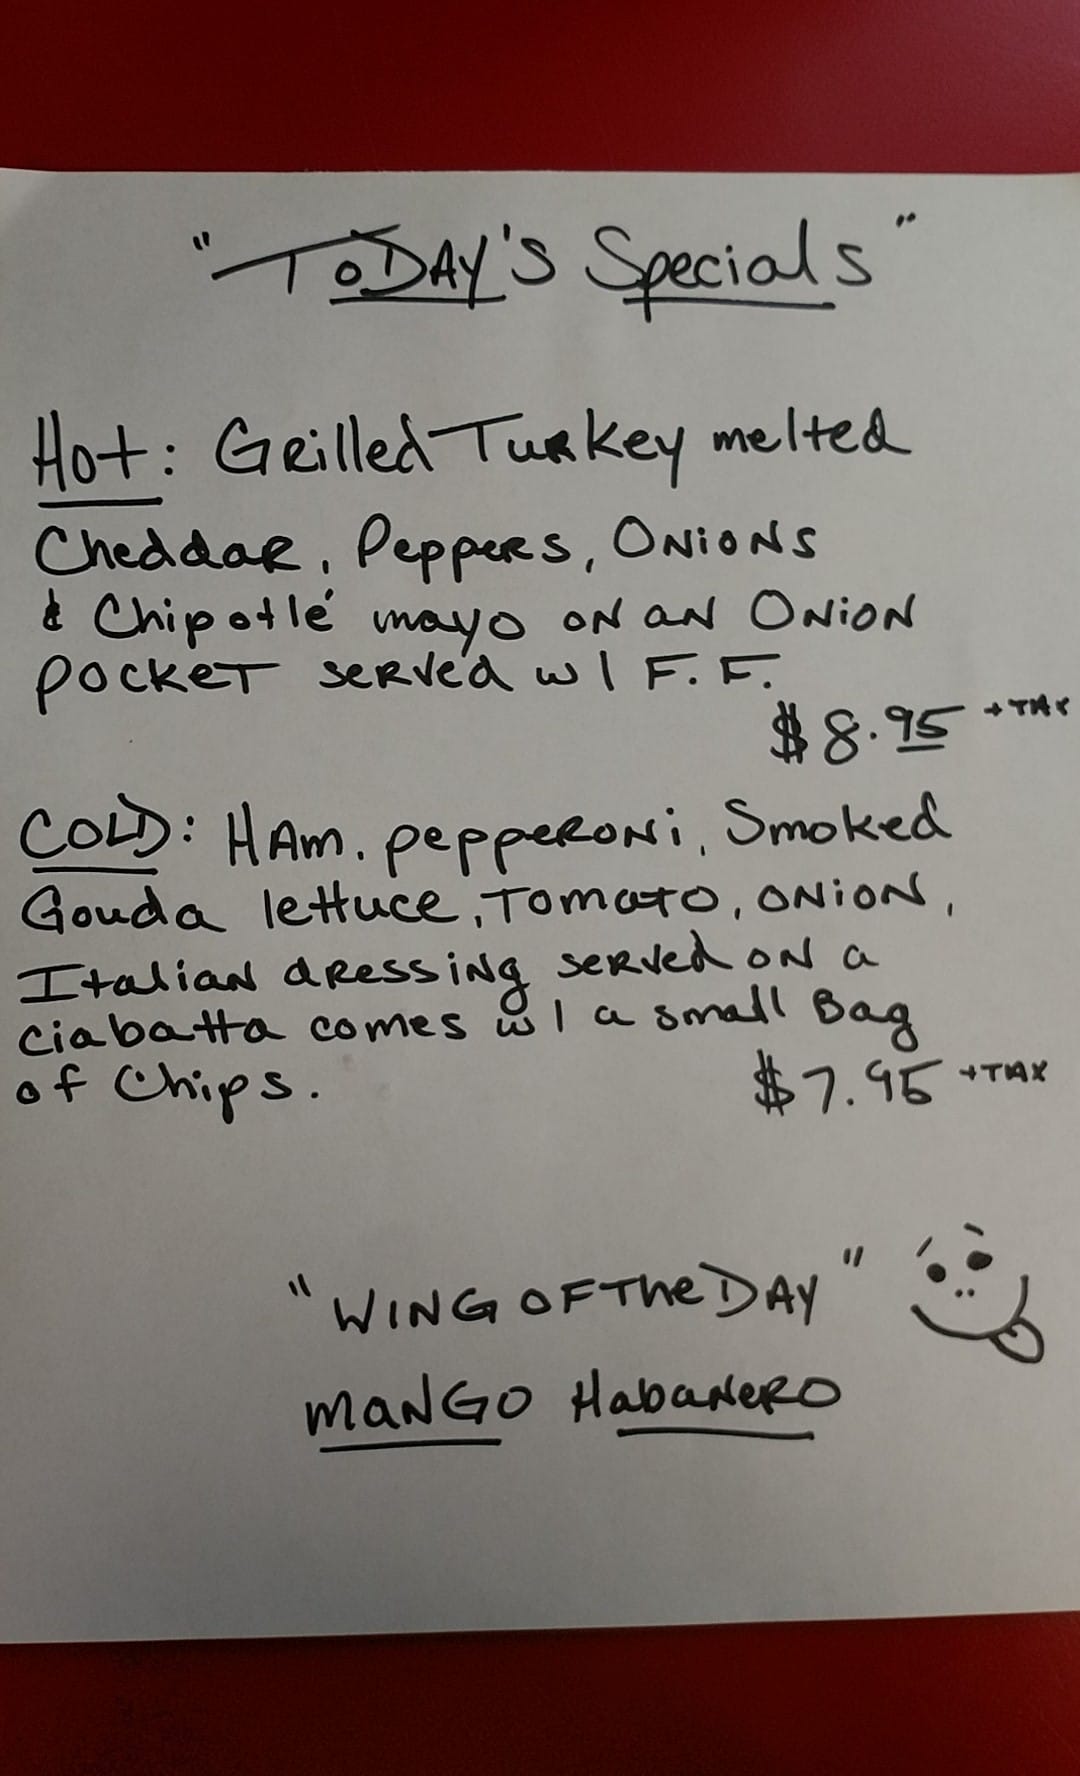 "TODAY'S Specials"
Hot: Grilled Turkey melted
Cheddar, Peppers, Onions
& Chipotlé mayo on an Onion
Pocket served w/ F.F.
$8.95 +TAX
COLD: HAm. pepperoni, Smoked
Gouda lettuce, Tomato, Onion,
Italian dressing served on a
ciabatta comes w/ a small Bag
of Chips.
$7.95 +TAX
"WING OF The DAY"
mango Habanero